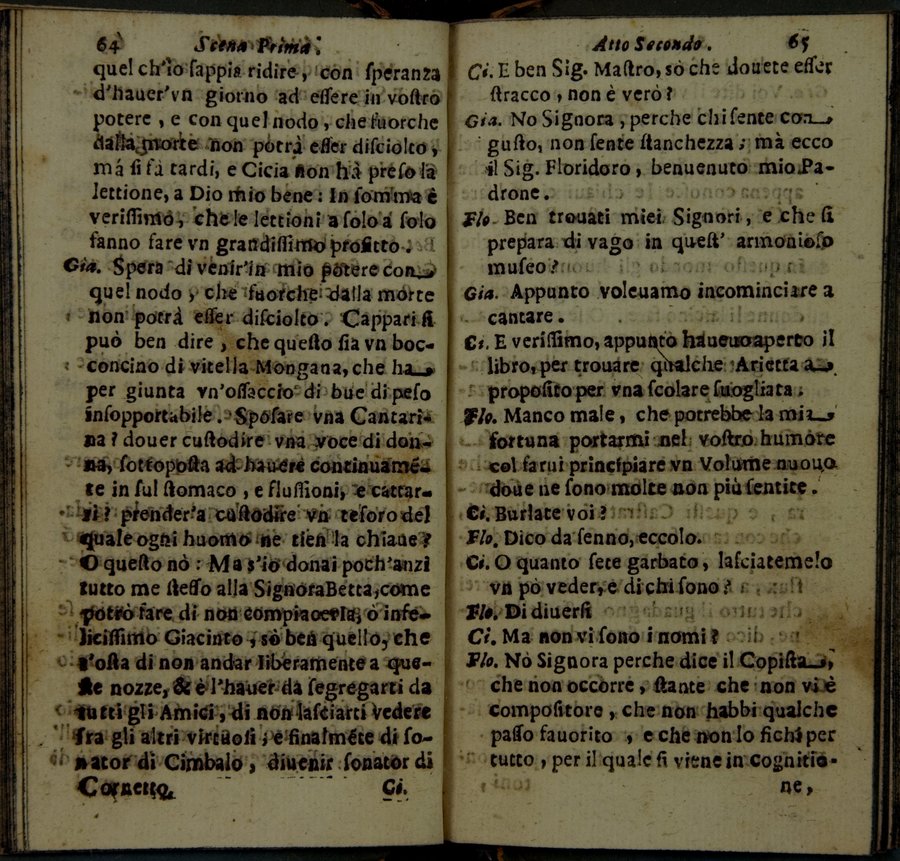 64 Scena Prima.
quel ch'io sappia ridire, con speranza
d'hauer'vn giorno ad essere in vostro
potere, e con quel nodo, che fuorche
dalla morte non potrà esser disciolto,
má si fà tardi, e Cicia non hà preso la
lettione, a Dio mio bene: In somma è
verissimo, che le lettioni a solo a solo
fanno fare vn grandissimo profitto.
Gia. Spera di venir'in mio potere con
quel nodo, che fuorche dalla morte
non potrà esser disciolto. Cappari si
può ben dire, che questo sia vn boc-
concino di vitella Mongana, che ha
per giunta vn'ossaccio di bue di peso
insopportabile. Sposare vna Cantari-
na? douer custodire vna voce di don-
na, sottoposta ad hauere continuamé-
te in sul stomaco, e flussioni, e cattar-
ri? prender'a custodire vn tesoro del
quale ogni huomo ne tien la chiaue?
O questo nò: Ma s'io donai poch'anzi
tutto me stesso alla Signora Betta, come
potrò fare di non compiacerla, ò infe-
licissimo Giacinto, sò ben quello, che
t'osta di non andar liberamente a que-
ste nozze, & è l'hauer da segregarti da
tutti gli Amici, di non lasciarti vedere
fra gli altri virtuosi; e finalméte di so-
nator di Cimbalo, diuenir sonator di
Cornetto. Ci.
Atto Secondo. 65
Ci. E ben Sig. Mastro, sò che douete esser
stracco, non è verò?
Gia. No Signora, perche chi sente con
gusto, non sente stanchezza; mà ecco
il Sig. Floridoro, benuenuto mio Pa-
drone.
Flo. Ben trouati miei Signori, e che si
prepara di vago in quest' armonioso
museo?
Gia. Appunto voleuamo incominciare a
cantare.
Ci. E verissimo, appunto haueuo aperto il
libro, per trouare qualche Arietta a
proposito per vna scolare suogliata.
Flo. Manco male, che potrebbe la mia
fortuna portarmi nel vostro humore
col farui principiare vn Volume nuouo
doue ne sono molte non più sentite.
Ci. Burlate voi?
Flo. Dico da senno, eccolo.
Ci. O quanto sete garbato, lasciatemelo
vn pò veder, e di chi sono?
Flo. Di diuersi
Ci. Ma non vi sono i nomi?
Flo. Nò Signora perche dice il Copista,
che non occorre, stante che non vi è
compositore, che non habbi qualche
passo fauorito, e che non lo fichi per
tutto, per il quale si viene in cognitio-
ne,